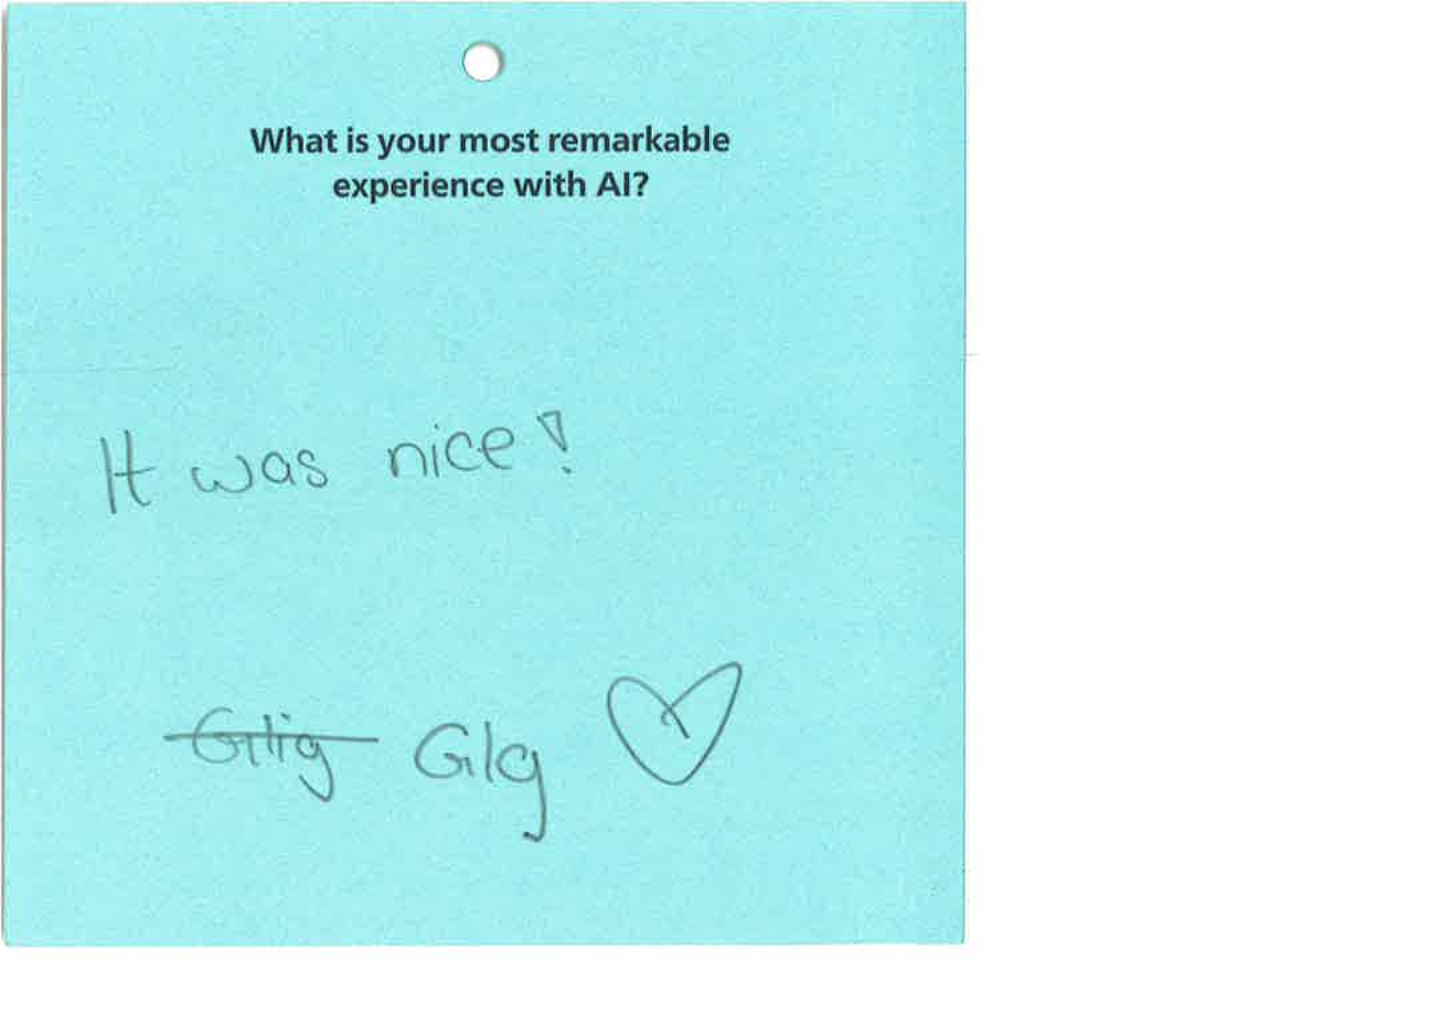 What is your most remarkable
experience with AI?
It was nice!
Glig Glg